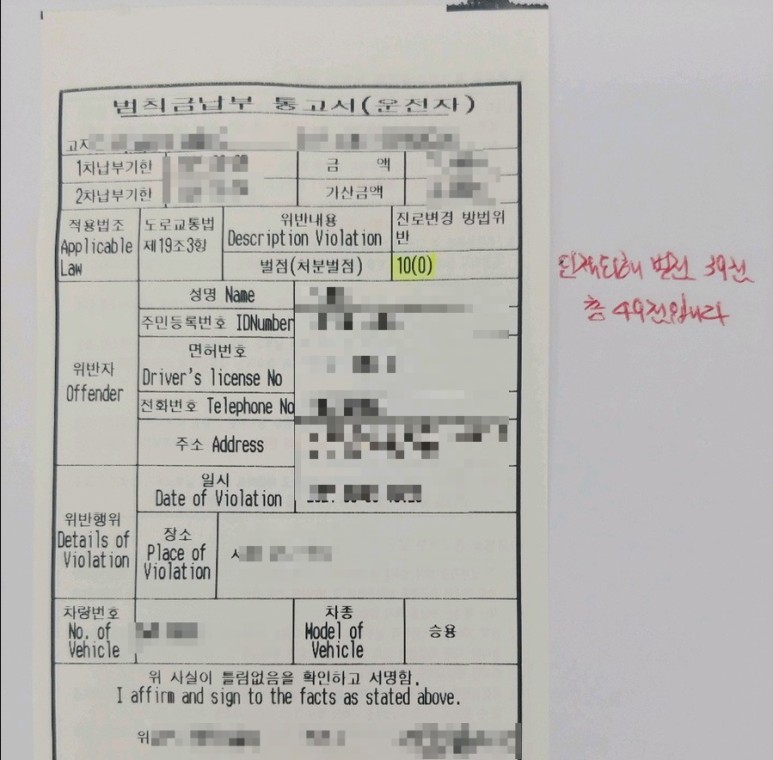 범칙금납부 통고서(운전자)
고지
1차납부기한 금 액
2차납부기한 가산금액
적용법조 Applicable Law
도로교통법 제19조3항
위반내용 Description Violation
진로변경 방법위반
벌점(처분벌점) 10(0)
총 49점입니다
위반자 Offender
성명 Name
주민등록번호 IDNumber
면허번호
Driver's license No
전화번호 Telephone No
주소 Address
위반행위
Details of
Violation
일시
Date of Violation
장소
Place of
Violation
차량번호
No. of
Vehicle
차종
Model of
Vehicle
승용
위 사실이 틀림없음을 확인하고 서명함.
I affirm and sign to the facts as stated above.
위